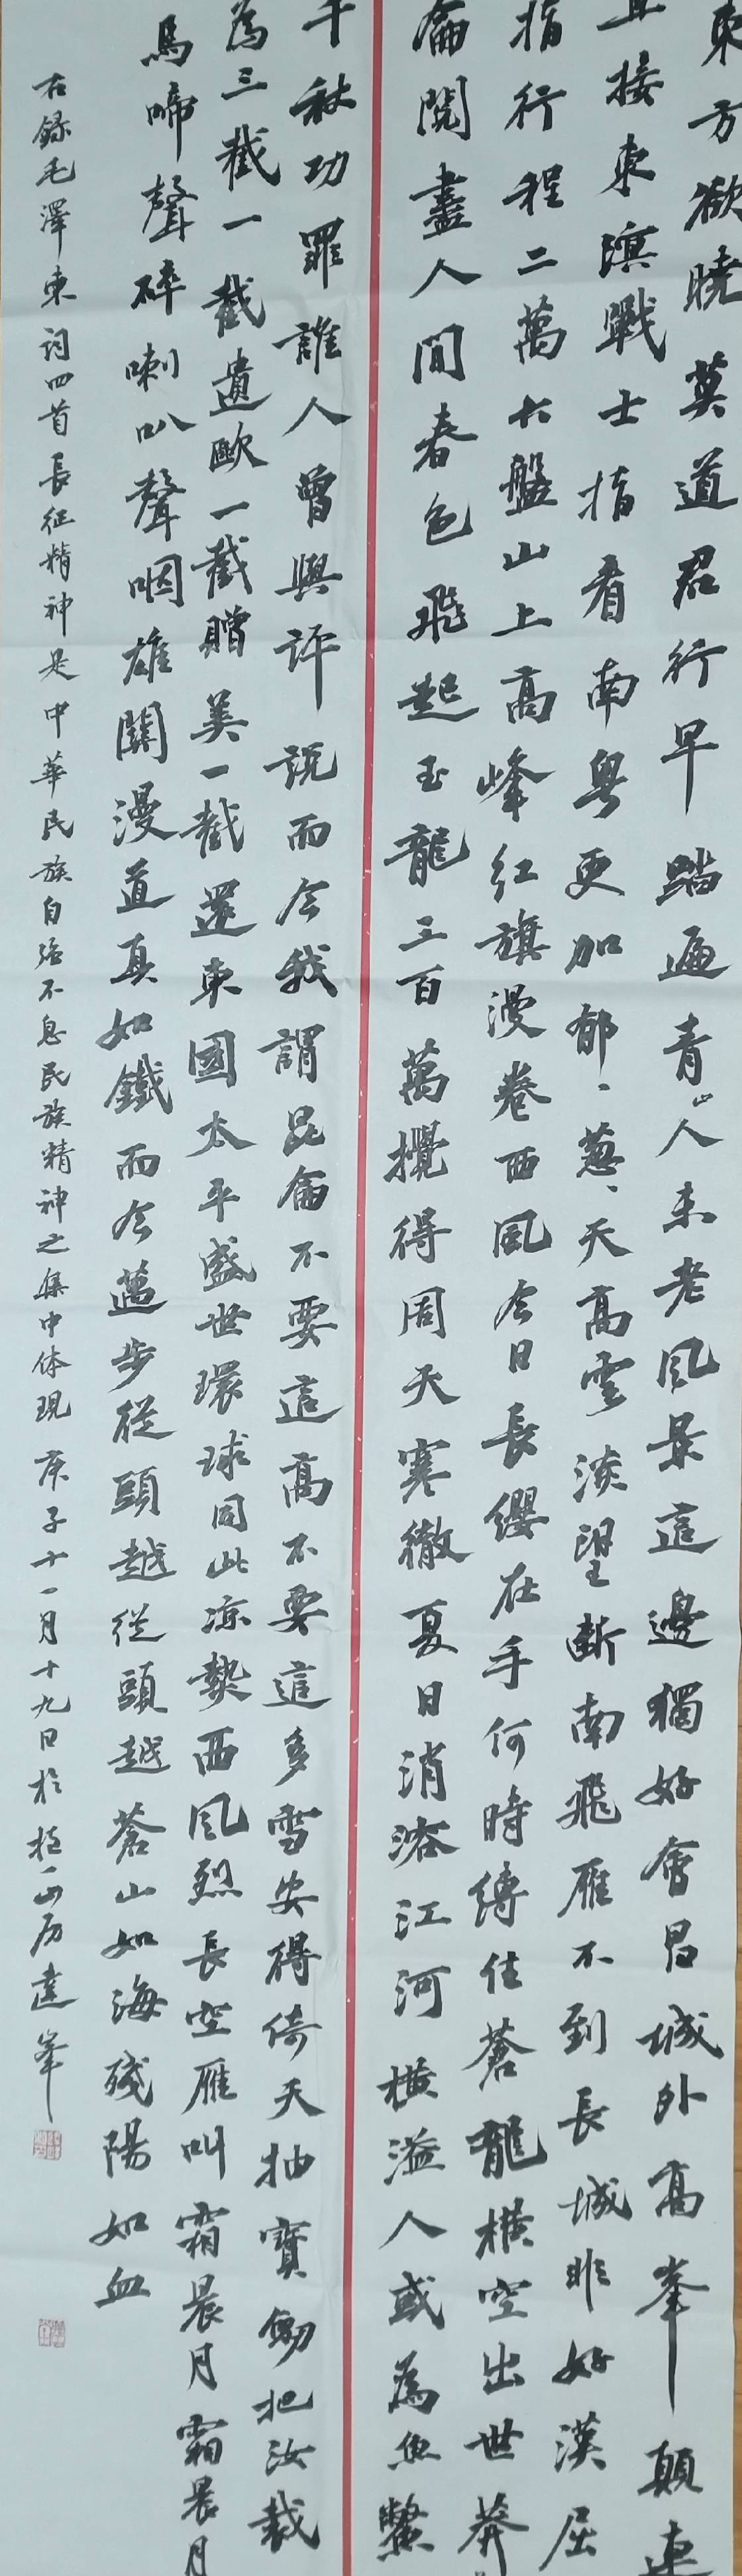 東方欲曉莫道君行早踏遍青山人未老風景這邊獨好會昌城外高峯顛連
直接東溟戰士指看南粵更加郁、蔥、天高雲淡望斷南飛雁不到長城非好漢屈
指行程二萬六盤山上高峰紅旗漫卷西風今日長纓在手何時縛住蒼龍橫空出世莽
崙閱盡人間春色飛起玉龍三百萬攪得周天寒徹夏日消溶江河橫溢人或為魚鱉
千秋功罪誰人曾與評說而今我謂昆崙不要這高不要這多雪安得倚天抽寶劍把汝裁
為三截一截遺歐一截贈美一截還東國太平盛世環球同此涼熱西風烈長空雁叫霜晨月霜晨月
馬啼聲碎喇叭聲咽雄關漫道真如鐵而今邁步從頭越從頭越蒼山如海殘陽如血
右錄毛澤東詞四首長征精神是中華民族自強不息民族精神之集中体現庚子十一月十九日於